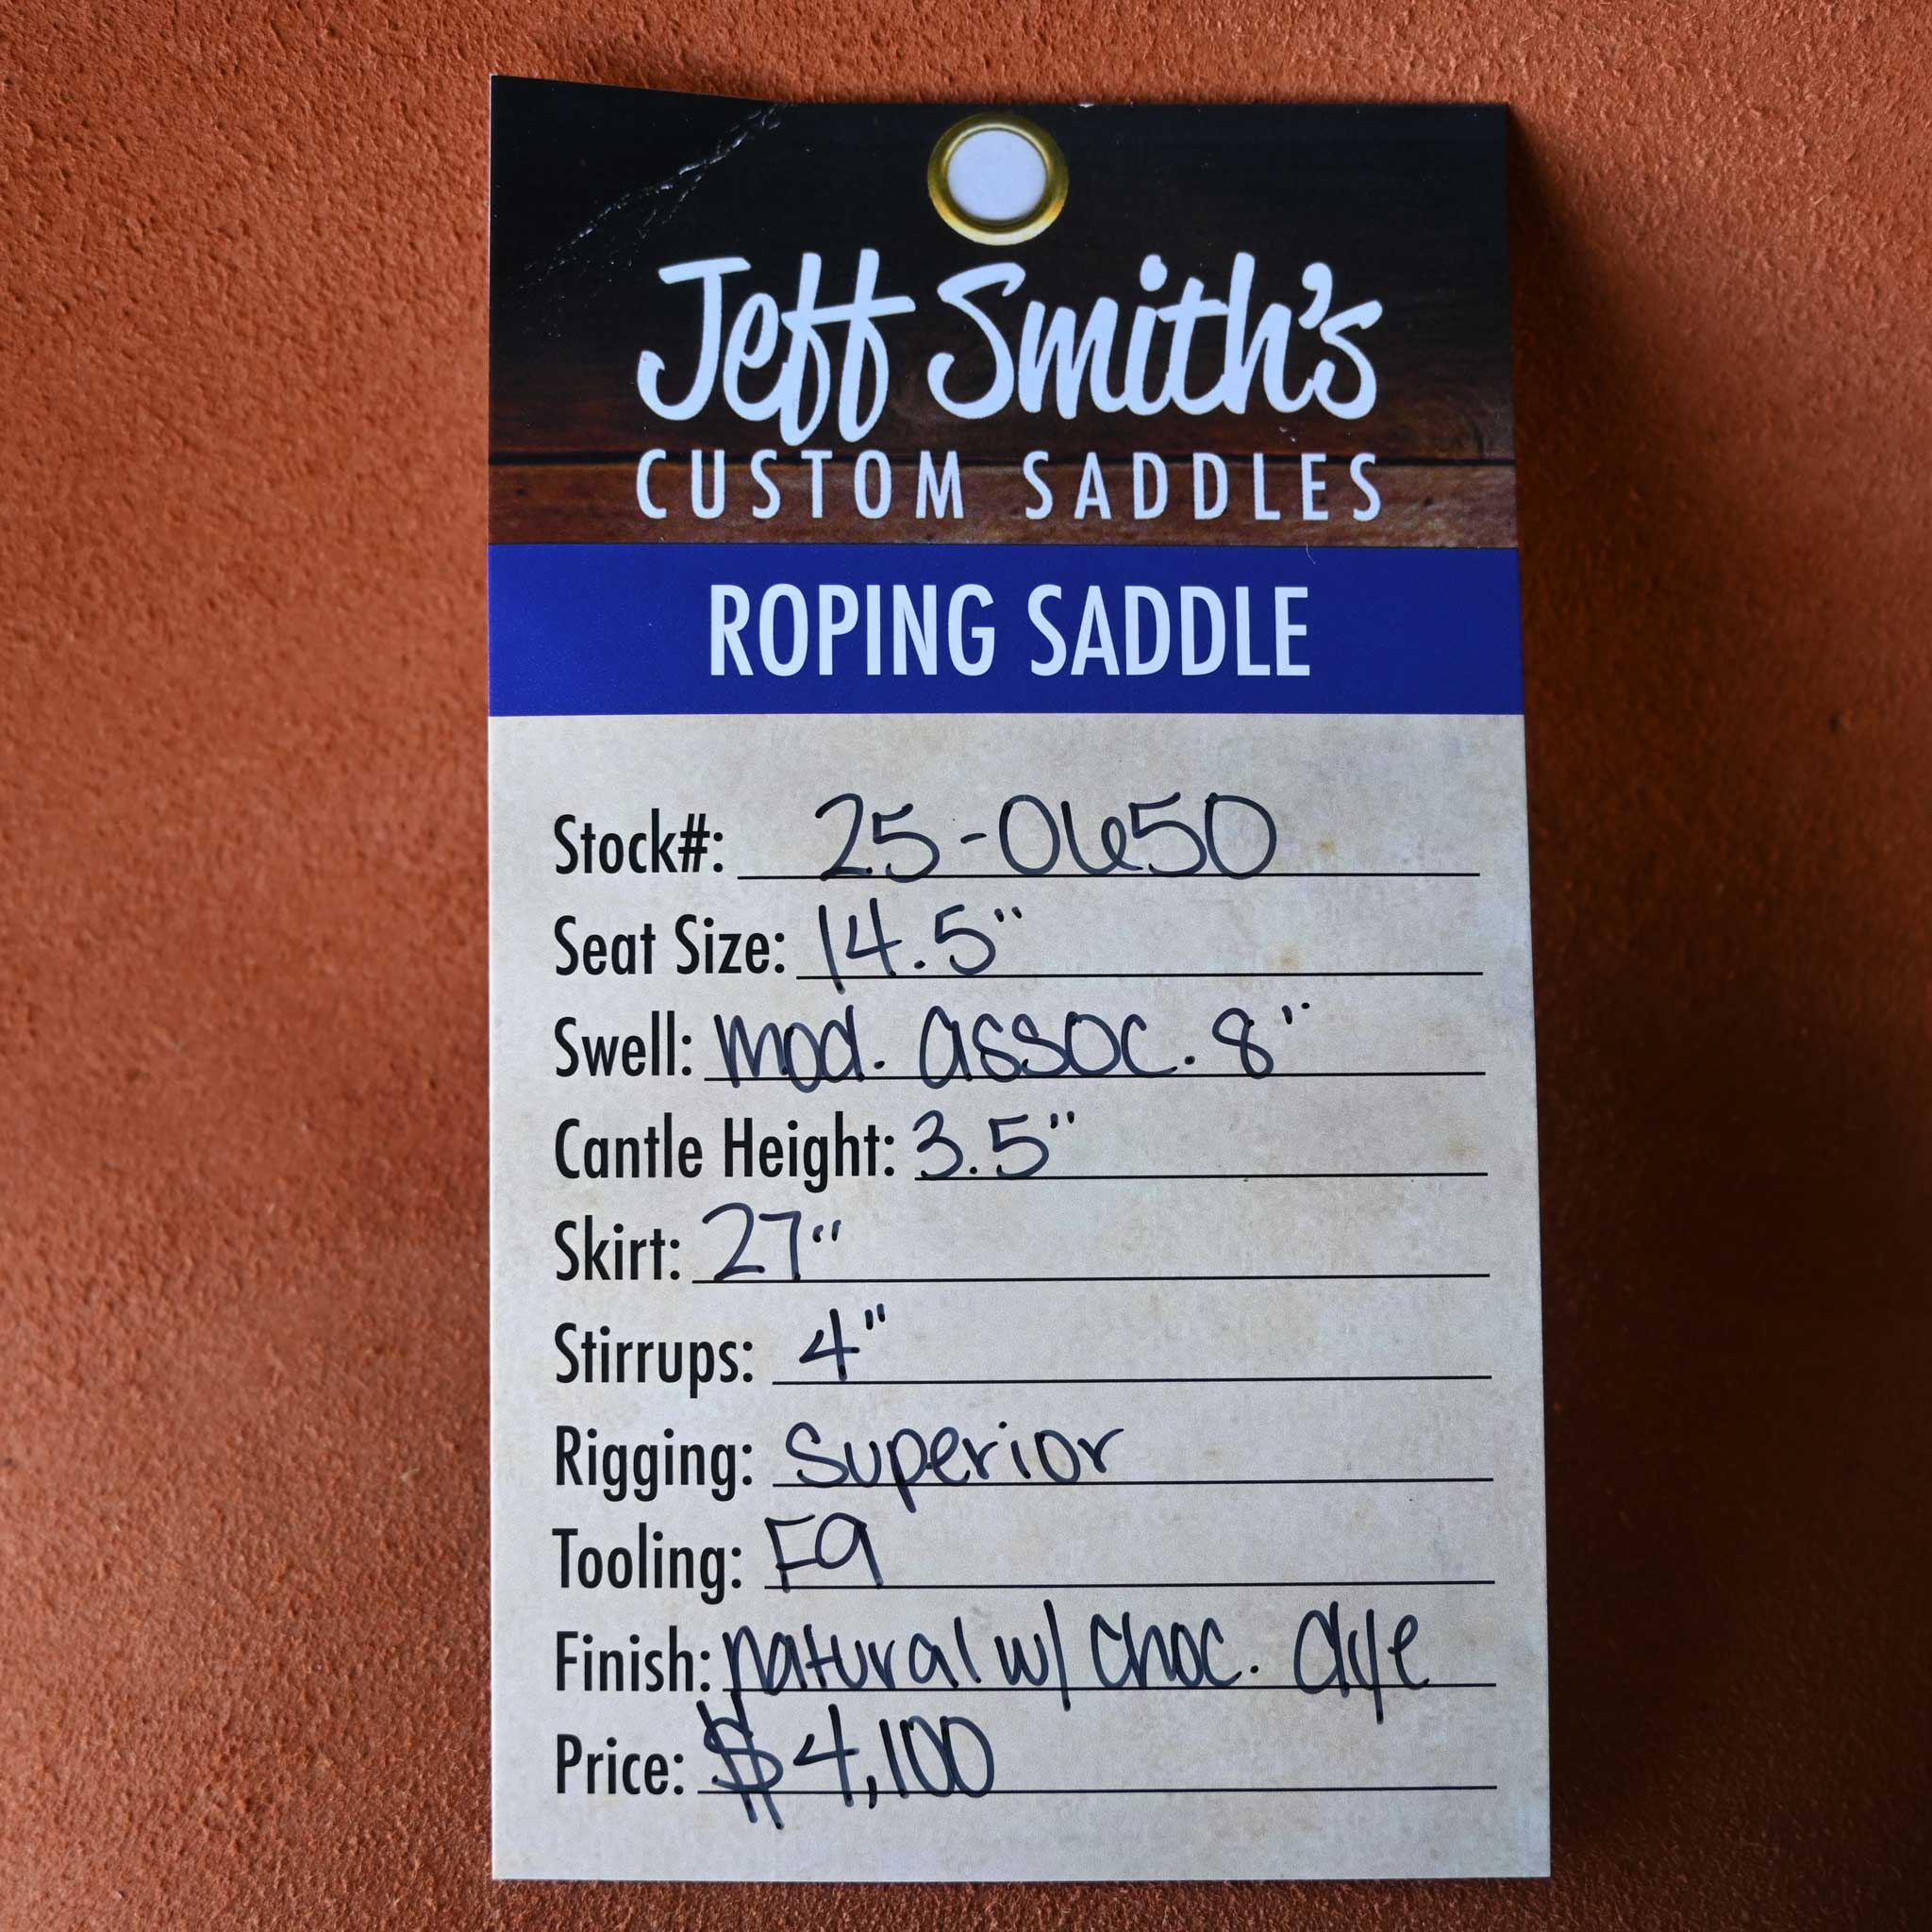 Jeff Smith's
CUSTOM SADDLES
ROPING SADDLE
Stock#: 25-0650
Seat Size: 14.5"
Swell: mod. assoc. 8"
Cantle Height: 3.5"
Skirt: 27"
Stirrups: 4"
Rigging: Superior
Tooling: F9
Finish: natural w/ choc. dye
Price: $4,100